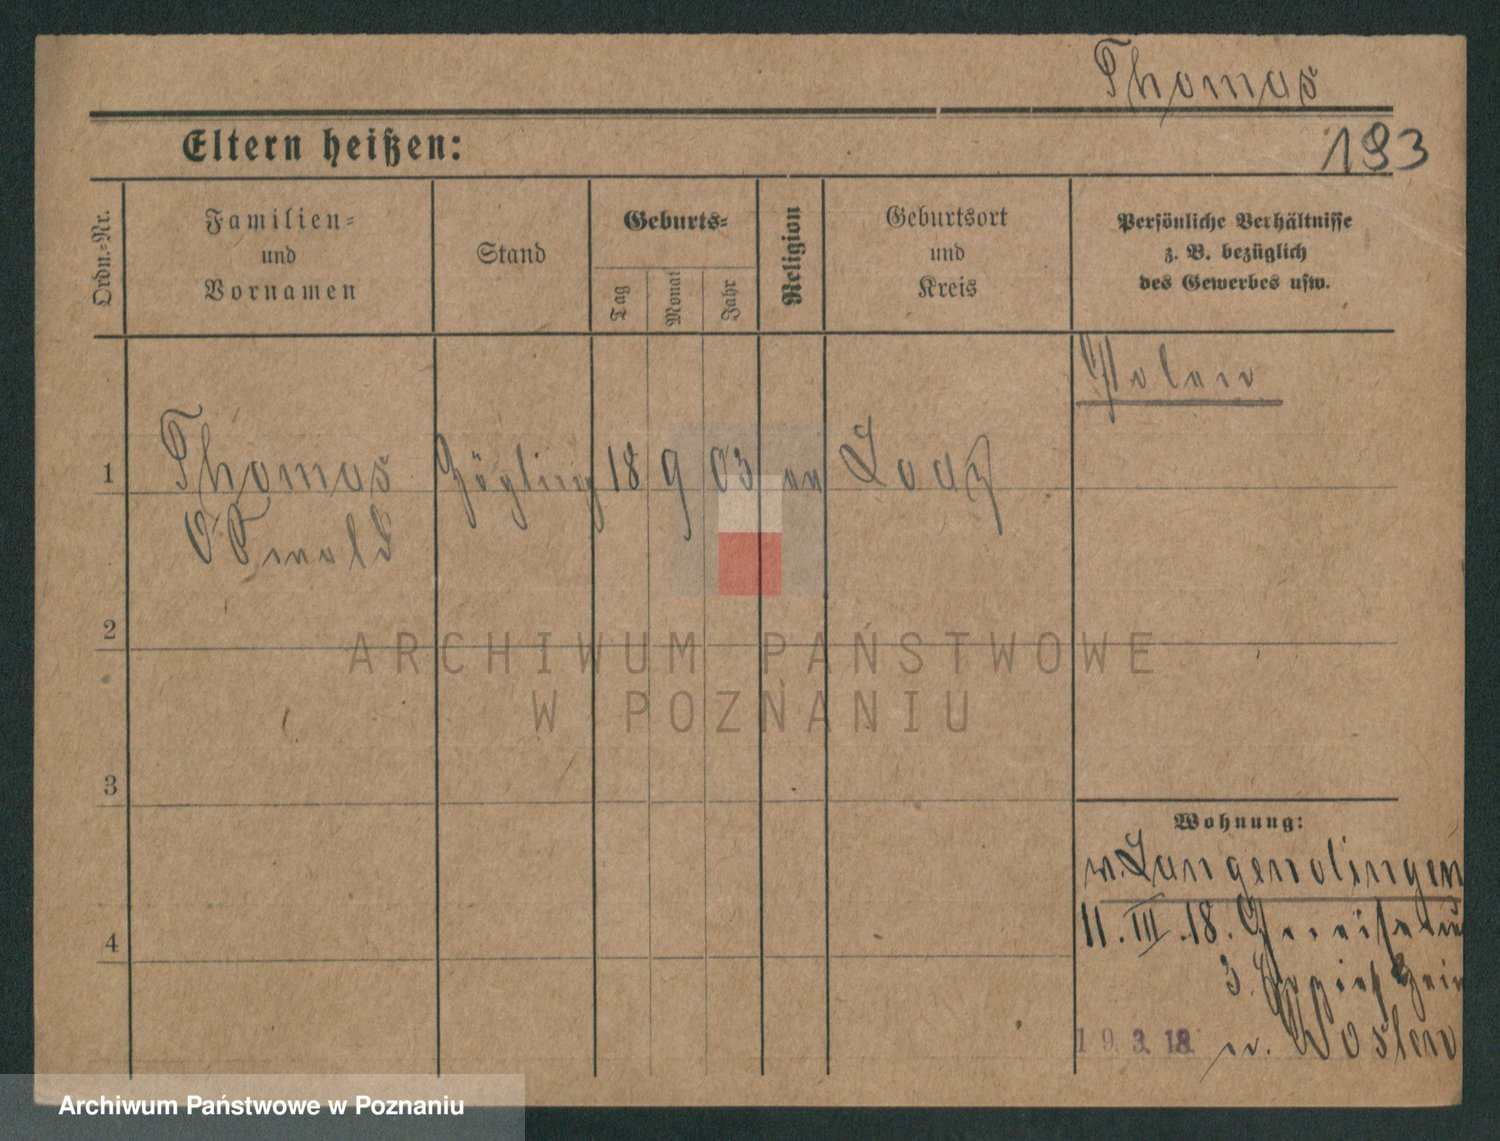 Thomas
Eltern heißen:
193
Ordn.-Nr.
Familien-
und
Vornamen
Stand
Geburts-
Tag
Monat
Jahr
Religion
Geburtsort
und
Kreis
Persönliche Verhältnisse
z. B. bezüglich
des Gewerbes usw.
Polen
1
Thomas
Zögling
18
9
03
ev
Lodz
Oswald
2
3
4
Wohnung:
v. Langenolingen
11. III. 18.
3.
19. 3. 18.
n. Posten
ARCHIWUM PAŃSTWOWE
W POZNANIU
Archiwum Państwowe w Poznaniu